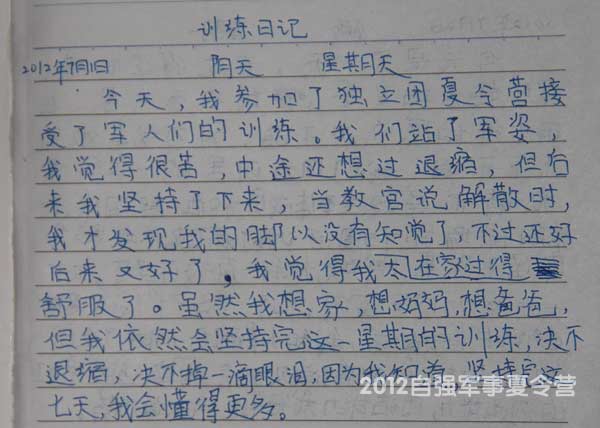 训练日记
2012年7月1日 阴天 星期天
今天，我参加了独立团夏令营接
受了军人们的训练。我们站了军姿，
我觉得很苦，中途还想过退缩，但后
来我坚持了下来，当教官说解散时，
我才发现我的脚以没有知觉了，不过还好
后来又好了，我觉得我太在家过得
舒服了。虽然我想家，想妈妈，想爸爸，
但我依然会坚持完这一星期的训练，决不
退缩，决不掉一滴眼泪，因为我知道，坚持完这
七天，我会懂得更多。
2012自强军事夏令营